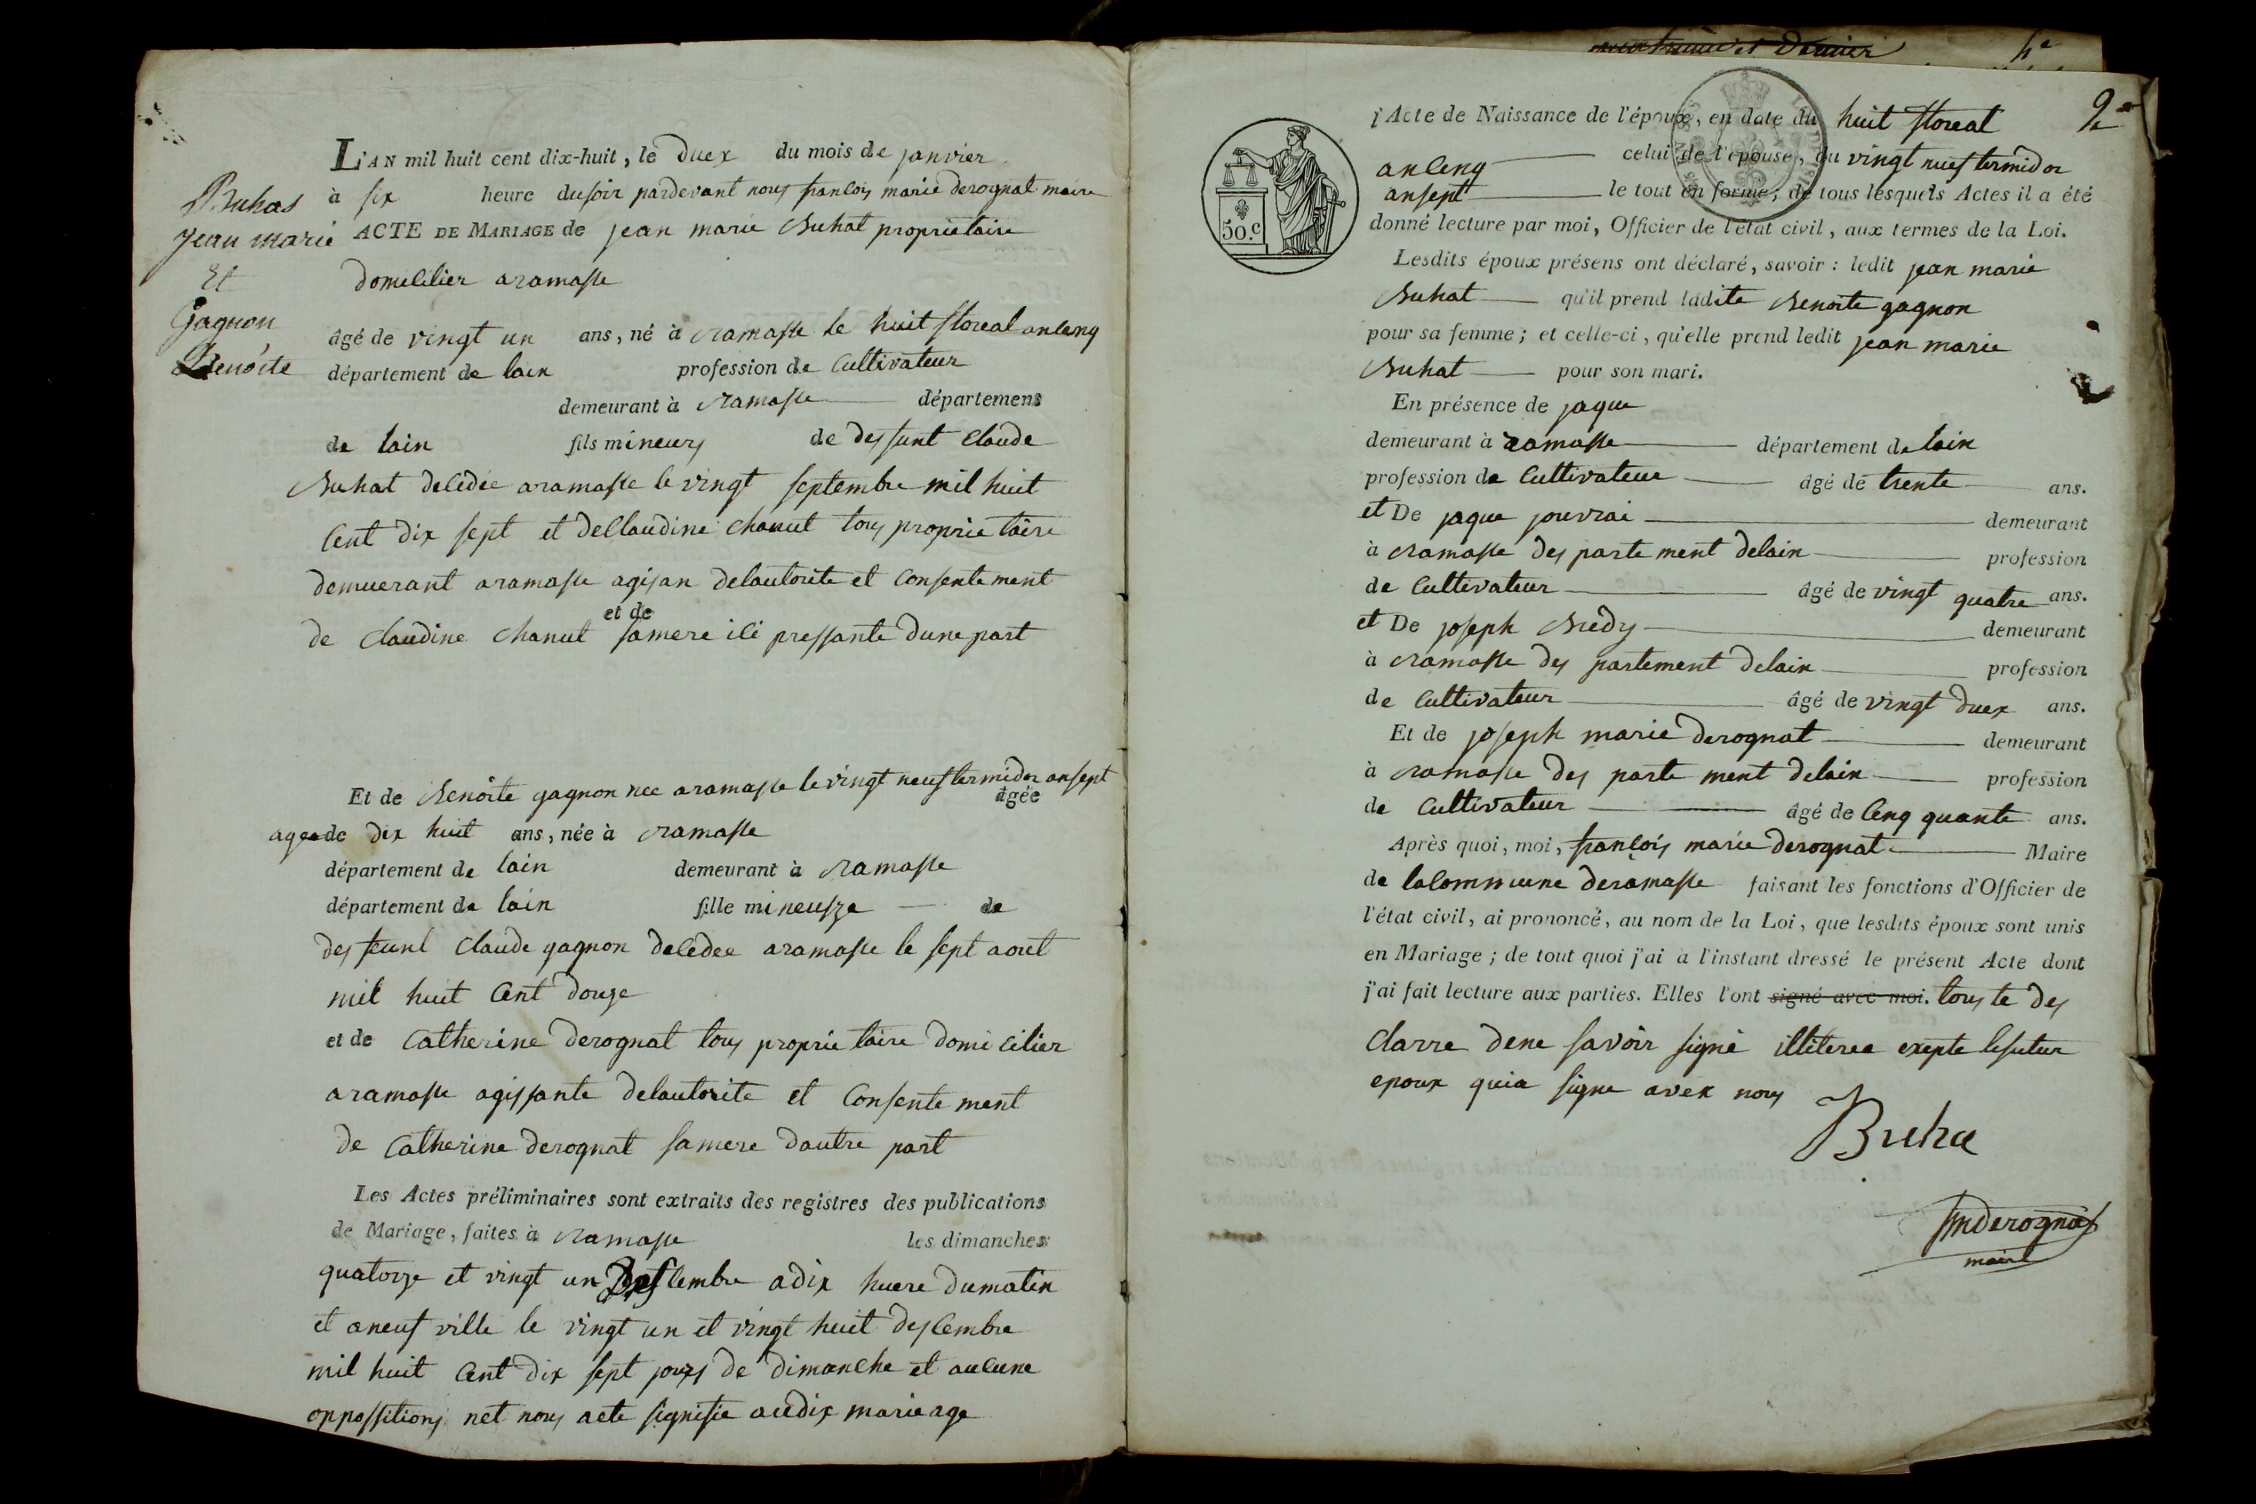 L'AN mil huit cent dix-huit, le duex du mois de janvier
à six heure dusoir pardevant nous francois marie derognat maire
ACTE DE MARIAGE de jean marie Buhat proprietaire
domecilier aramasse
Buhas
Jean marie
Et
Gagnon
Benoite
âgé de vingt un ans, né à ramasse le huit floreal ancenq
département de lain profession de Cultivateur
demeurant à ramasse département
de lain fils mineurs de desfunt Claude
Buhat decedée aramasse le vingt septembre mil huit
Cent dix sept et deClaudine Chanut tous proprie taire
demuerant aramasse agisan delautorite et Consente ment
de Claudine Chanut et de samere ici pressante dune part
Et de Benoite gagnon nee aramasse le vingt neuf termidor ansept
âgée
agee de dix huit ans, née à ramasse
département de lain demeurant à ramasse
département de lain fille mineusze de
desfeunt Claude gagnon decedee aramasse le sept aout
mil huit Cent douze
et de Catherine derognat tous proprie taire domi cilier
aramasse agissante delautorite et Consente ment
de Catherine derognat samere dautre part
Les Actes préliminaires sont extraits des registres des publications
de Mariage, faites à ramasse les dimanches
quatorze et vingt un adix huere dumatin
et aneuf ville le vingt un et vingt huit descembre
mil huit Cent dix sept jours de dimanche et aucune
oppossitions net nous acte signifie audix marieage
2e
l'Acte de Naissance de l'époux, en date du huit floreal
ancenq celui de l'épouse, du vingt nuef termidor
ansept le tout en forme; de tous lesquels Actes il a été
donné lecture par moi, Officier de l'état civil, aux termes de la Loi.
50.c
Lesdits époux présens ont déclaré, savoir : ledit jean marie
Buhat qu'il prend ladite Benoite gagnon
pour sa femme ; et celle-ci, qu'elle prend ledit jean marie
Buhat pour son mari.
En présence de jaque
demeurant à ramasse département de lain
profession de Cultivateur âgé de trente ans.
et De jaque jouvrai demeurant
à ramasse des parte ment delain profession
de Cultevateur âgé de vingt quatre ans.
et De joseph Bredy demeurant
à ramasse des partement delain profession
de Cultivateur âgé de vingt duex ans.
Et de joseph marie derognat demeurant
à ramasse des parte ment delain profession
de Cultivateur âgé de Cenq quante ans.
Après quoi, moi, francois marie derognat Maire
de laCommune deramasse faisant les fonctions d'Officier de
l'état civil, ai prononcé, au nom de la Loi, que lesdits époux sont unis
en Mariage ; de tout quoi j'ai à l'instant dressé le présent Acte dont
j'ai fait lecture aux parties. Elles l'ont signé avec moi. tous te des
Clarre dene savoir signé illiteree exepte lefutur
epoux quia signe avex nous
Buha
fmderognat
maire